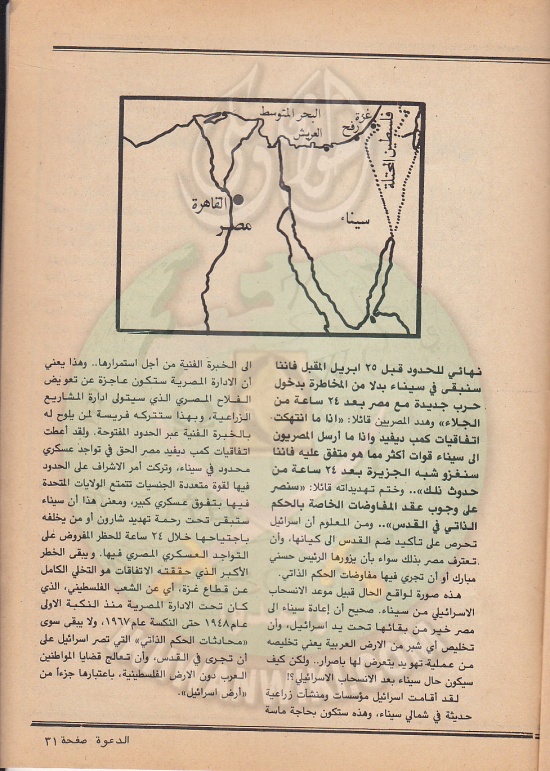 البحر المتوسط
العريش
غزة
رفح
فلسطين المحتلة
القاهرة
مصر
سيناء
نهائي للحدود قبل ٢٥ ابريل المقبل فاننا
سنبقى في سيناء بدلا من المخاطرة بدخول
حرب جديدة مع مصر بعد ٢٤ ساعة من
الجلاء» وهدد المصريين قائلا: «اذا ما انتهكت
اتفاقيات كمب ديفيد واذا ما أرسل المصريون
الى سيناء قوات أكثر مما هو متفق عليه فاننا
سنغزو شبه الجزيرة بعد ٢٤ ساعة من
حدوث ذلك».. وختم تهديداته قائلا: «سنصر
على وجوب عقد المفاوضات الخاصة بالحكم
الذاتي في القدس».. ومن المعلوم أن اسرائيل
تحرص على تأكيد ضم القدس الى كيانها، وأن
تعترف مصر بذلك سواء بأن يزورها الرئيس حسني
مبارك أو أن تجري فيها مفاوضات الحكم الذاتي.
هذه صورة لواقع الحال قبيل موعد الانسحاب
الاسرائيلي من سيناء. صحيح أن إعادة سيناء الى
مصر خير من بقائها تحت يد اسرائيل، وأن
تخليص أي شبر من الارض العربية يعني تخليصه
من عملية تهويد يتعرض لها باصرار.. ولكن كيف
سيكون حال سيناء بعد الانسحاب الاسرائيلي؟!
لقد أقامت اسرائيل مؤسسات ومنشآت زراعية
حديثة في شمالي سيناء، وهذه ستكون بحاجة ماسة
الى الخبرة الفنية من أجل استمرارها.. وهذا يعني
أن الادارة المصرية ستكون عاجزة عن تعويض
الفلاح المصري الذي سيتولى ادارة المشاريع
الزراعية، وبهذا ستتركه فريسة لمن يلوح له
بالخبرة الفنية عبر الحدود المفتوحة. ولقد أعطت
اتفاقيات كمب ديفيد مصر الحق في تواجد عسكري
محدود في سيناء، وتركت أمر الاشراف على الحدود
فيها لقوة متعددة الجنسيات تتمتع الولايات المتحدة
فيها بتفوق عسكري كبير، ومعنى هذا أن سيناء
ستبقى تحت رحمة تهديد شارون أو من يخلفه
باجتياحها خلال ٢٤ ساعة للحظر المفروض على
التواجد العسكري المصري فيها. ويبقى الخطر
الأكبر الذي حققته الاتفاقات هو التخلي الكامل
عن قطاع غزة، أي عن الشعب الفلسطيني، الذي
كان تحت الادارة المصرية منذ النكبة الاولى
عام ١٩٤٨ حتى النكسة عام ١٩٦٧، ولا يبقى سوى
«محادثات الحكم الذاتي» التي تصر اسرائيل على
أن تجرى في القدس، وأن تعالج قضايا المواطنين
العرب دون الارض الفلسطينية، باعتبارها جزءاً من
«أرض اسرائيل».
الدعوة صفحة ٣١